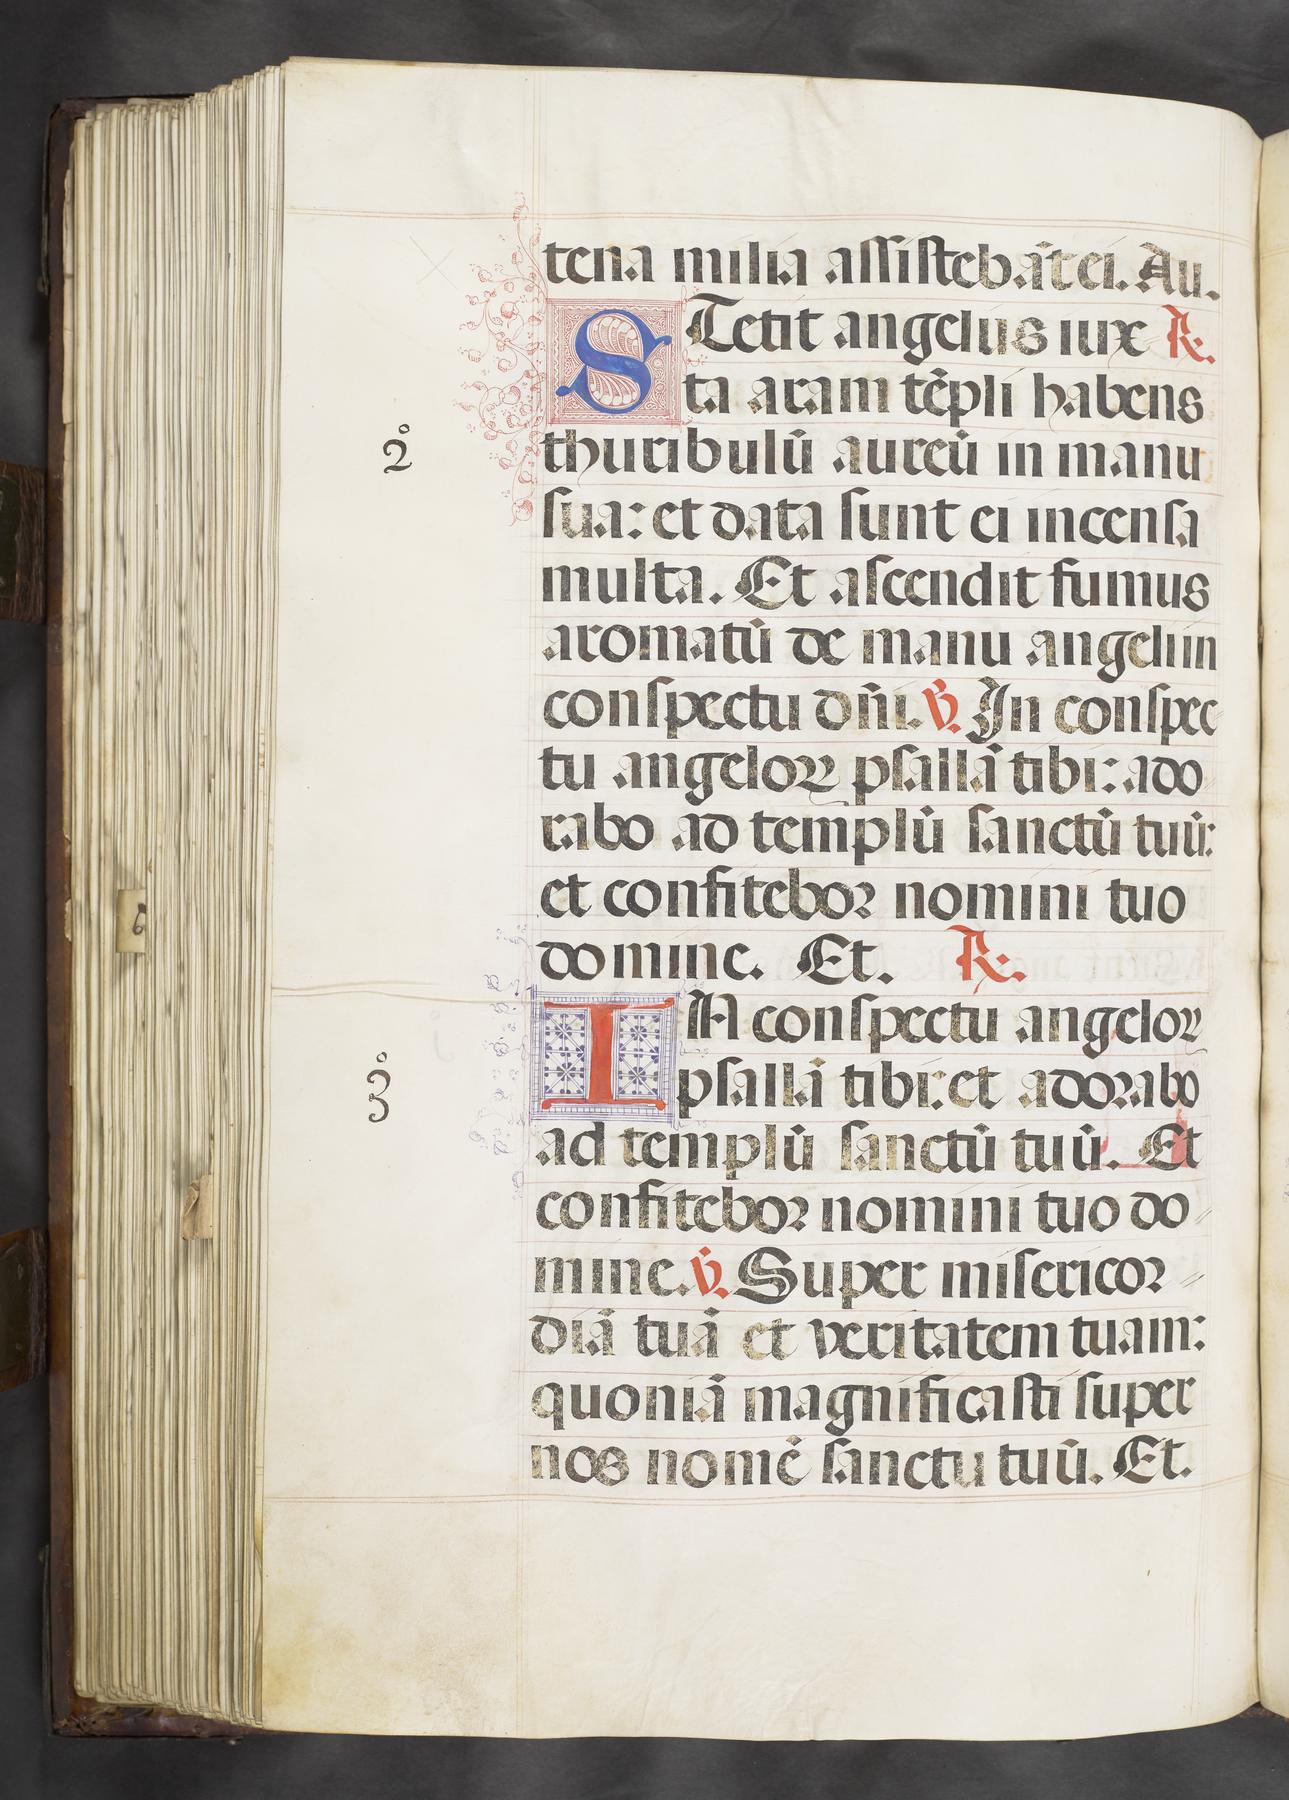 tena milia assistebāt ei. Au.
STetit angelus iux ℟.
ta aram tēpli habens
2º
thuribulū aureū in manu
sua: et data sunt ei incensa
multa. Et ascendit fumus
aromatū de manu angeli in
conspectu dñi. ℣. In conspec
tu angeloꝝ psallā tibi: ado
rabo ad templū sanctū tuū:
et confitebor nomini tuo
domine. Et. ℟.
IN conspectu angeloꝝ
3º
psallā tibi: et adorabo
ad templū sanctū tuū. Et
confitebor nomini tuo do
mine. ℣. Super misericor
diā tuā et veritatem tuam:
quoniā magnificasti super
nos nomē sanctu tuū. Et.